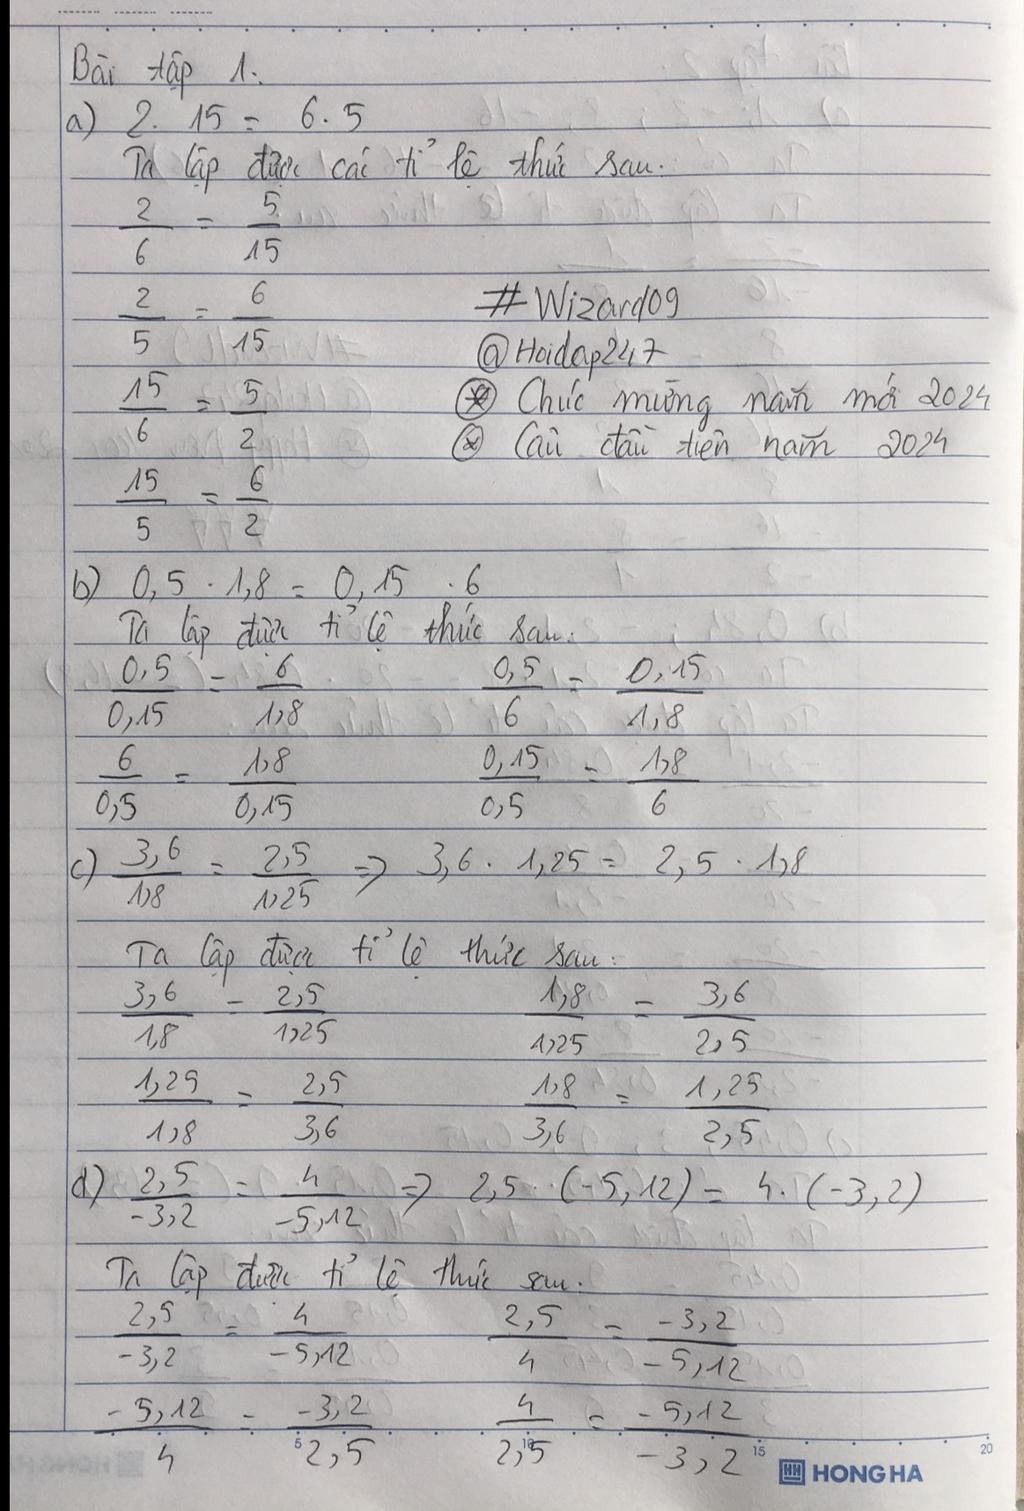 Bài tập 1.
a) 2. 15 = 6.5
Ta lập được các tỉ lệ thức sau:
2/6 = 5/15
2/5 = 6/15
# Wizard09
@Hoidap247
15/6 = 5/2
⊛ Chúc mừng năm mới 2024
⊛ Câu đầu tiên năm 2024
15/5 = 6/2
b) 0,5 . 1,8 = 0,15 . 6
Ta lập được tỉ lệ thức sau:
0,5/0,15 = 6/1,8 0,5/6 = 0,15/1,8
6/0,5 = 1,8/0,15 0,15/0,5 = 1,8/6
c) 3,6/1,8 = 2,5/1,25 => 3,6 . 1,25 = 2,5 . 1,8
Ta lập được tỉ lệ thức sau:
3,6/1,8 = 2,5/1,25 1,8/1,25 = 3,6/2,5
1,25/1,8 = 2,5/3,6 1,8/3,6 = 1,25/2,5
d) 2,5/-3,2 = 4/-5,12 => 2,5 . (-5,12) = 4. (-3,2)
Ta lập được tỉ lệ thức sau:
2,5/-3,2 = 4/-5,12 2,5/4 = -3,2/-5,12
-5,12/4 = -3,2/2,5 4/2,5 = -5,12/-3,2
5 10 15 20
HONG HA